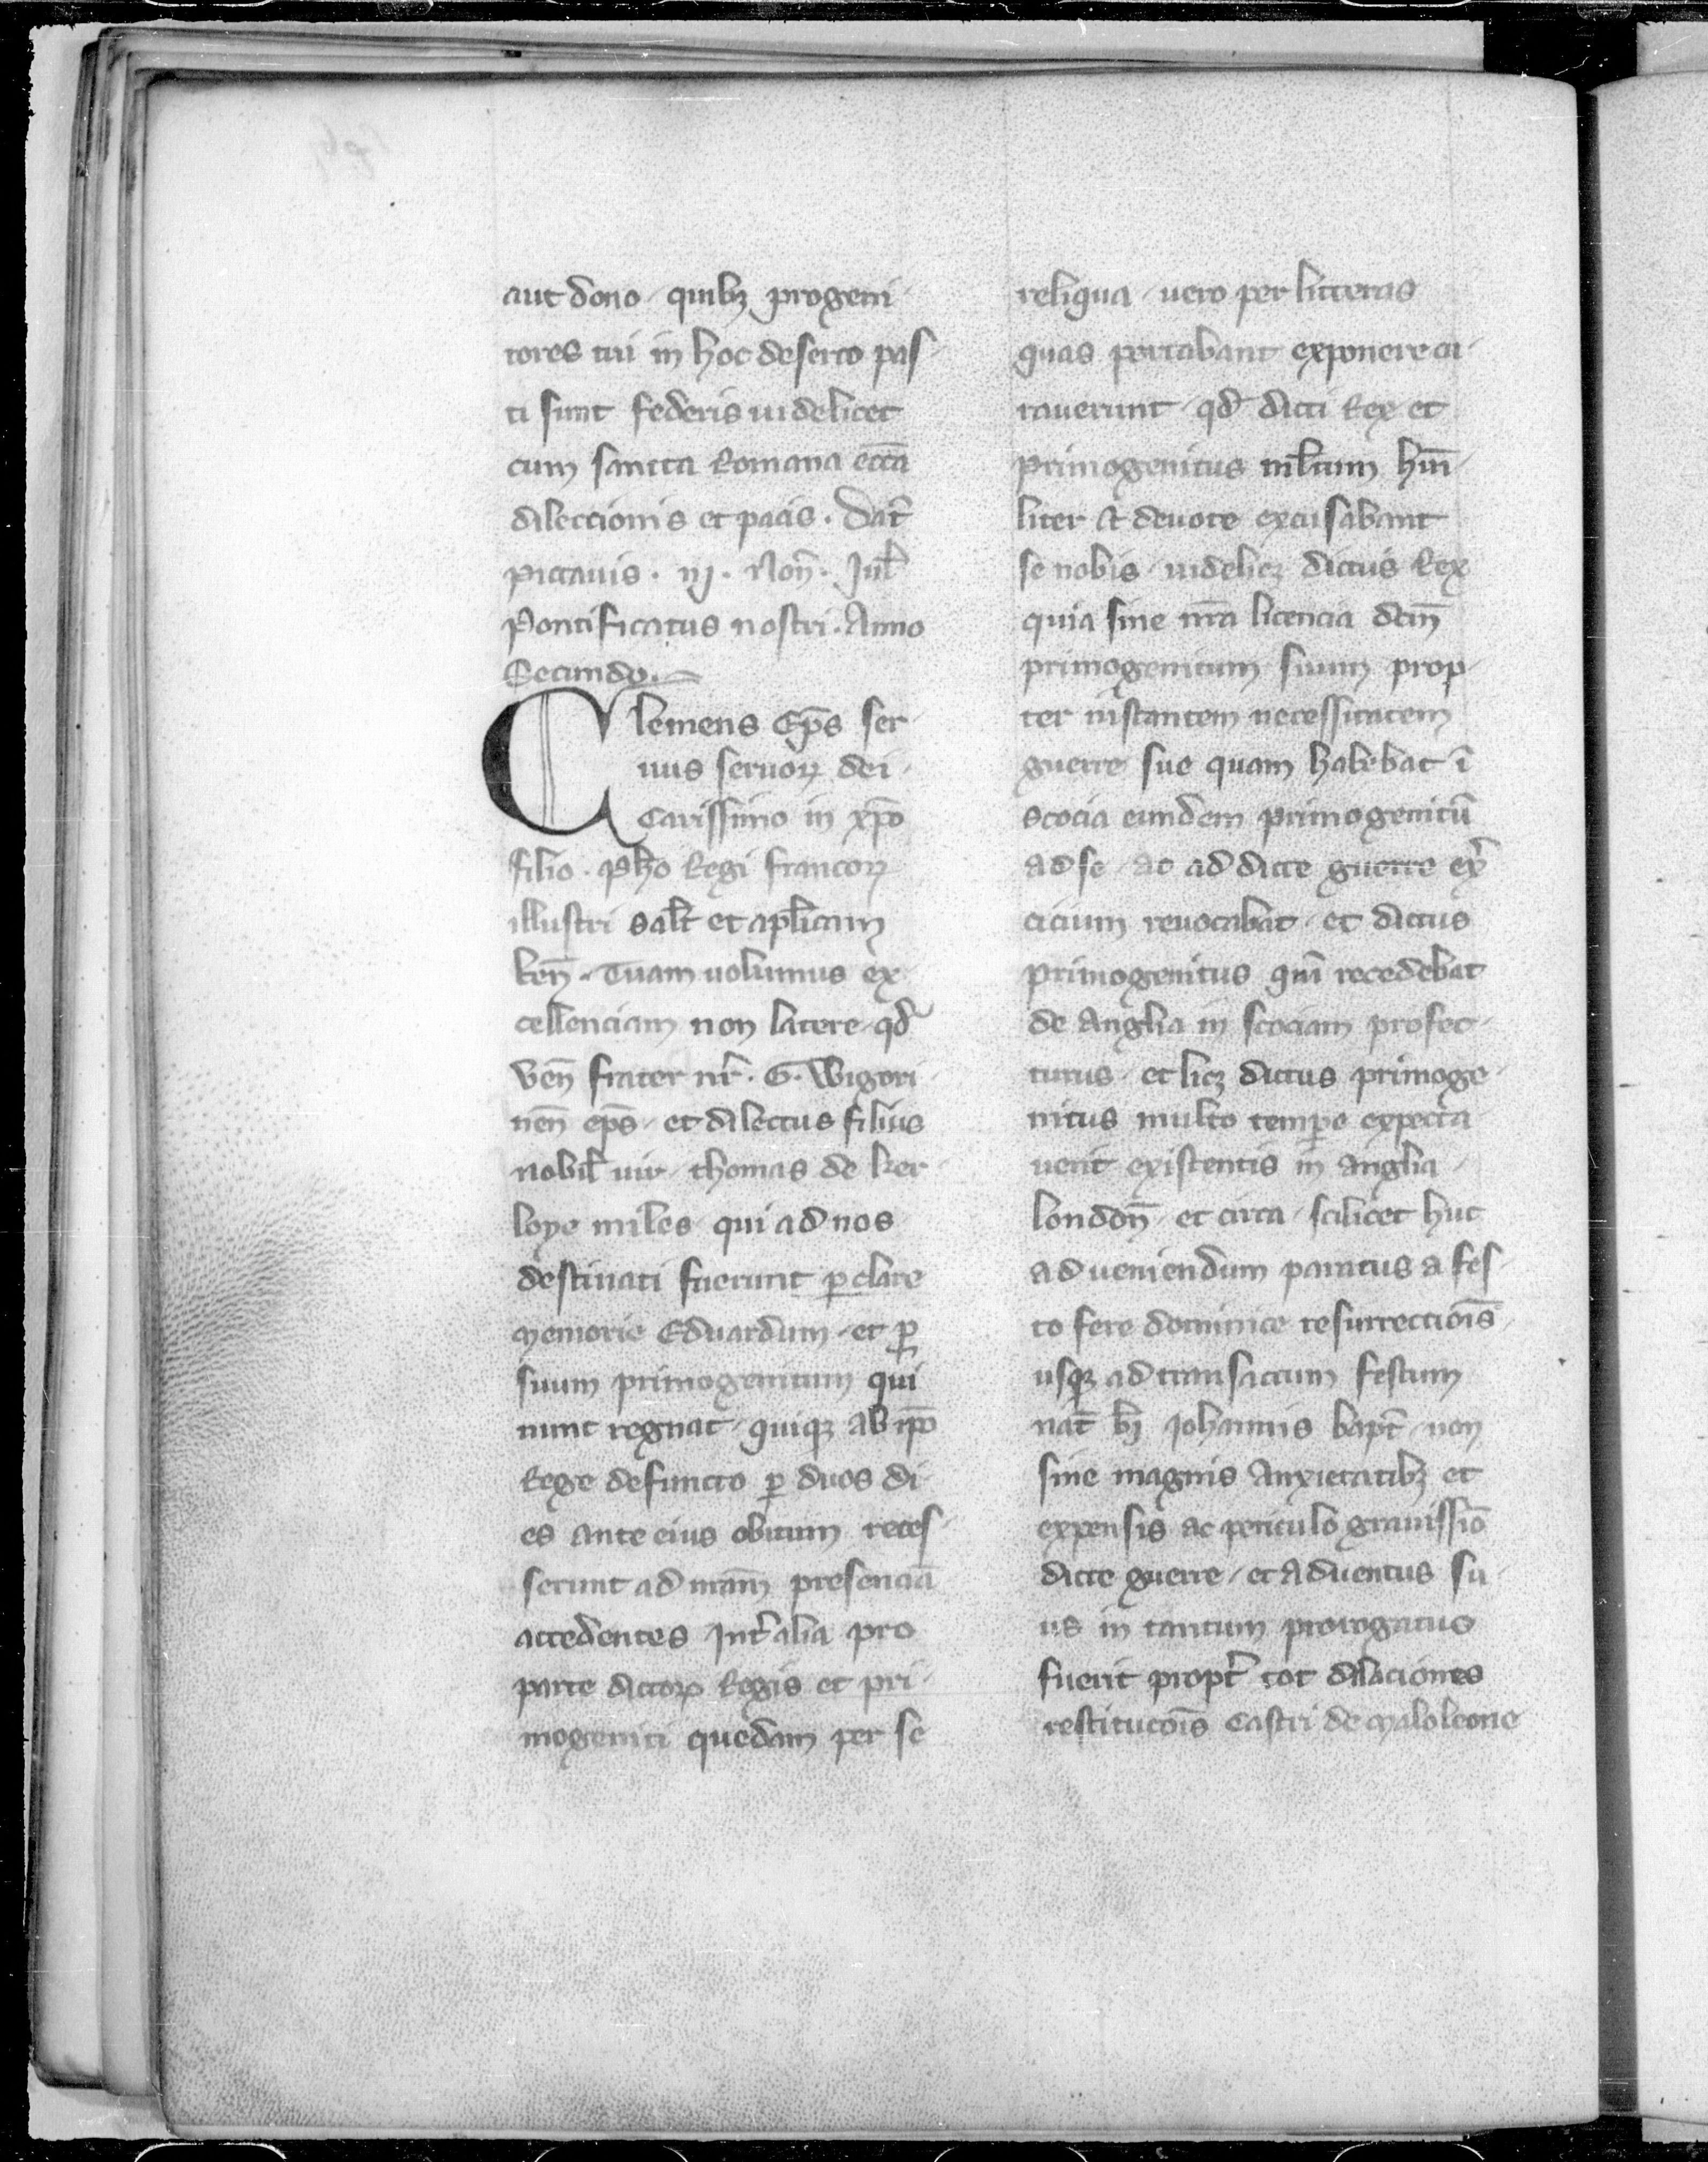 aut dono quibꝫ progeni
tores tui in hoc deserto pas
ti sunt federis uidelicet
cum sancta Romana ecc̄a
dileccionis et pacis. Dat̄
pictauis. iij. Non̄. Jul̄
Pontificatus nostri. Anno
Secundo.
Clemens Ep̄s ser
uus seruoꝝ dei
Carissimo in xp̄o
filio. Ph̄o Regi francoꝝ
illustri sal̄t et apl̄icam
ben̄. Tuam uolumus ex
cellenciam non latere qd̄
ven̄ frater nr̄. G. Wigori
nen̄ ep̄s et dilectus filius
nobil̄ uir thomas de ber
loye miles qui ad nos
destinati fuerunt ꝑ clare
memorie Eduardum et ꝑ
suum primogenitum qui
nunc regnat quiqꝫ ab ip̄o
Rege defuncto ꝑ duos di
es ante eius obitum reces
serunt ad nr̄am presenciā
accedentes Jnt̄ alia pro
parte dictoꝝ Regis et pri
mogeniti quedam per se
reliqua uero per litteras
quas portabant exponere cu
rauerunt qd̄ dicti Rex et
primogenitus ml̄tum hum̄
liter et deuote excusabant
se nobis uidelicꝫ dictus Rex
quia sine nr̄a licencia dc̄m̄
primogenitum suum prop
ter instantem necessitatem
guerre sue quam habebat ī
scocia eundem primogenitū
ad se ac ad dicte guerre ex̄
cicium reuocabat et dictus
primogenitus qm̄ recedebat
de Anglia in scociam profec
turus et licꝫ dictus primoge
nitus multo tempe expecta
uerit existentis in Anglia
london̄ et circa scilicet huc
ad ueniendum paratus a fes
to fere dominice resurrectiōis
usqꝫ ad transactum festum
nat̄ bi Johannis bapt̄ non
sine magnis Anxietatibꝫ et
expensis ac periculo grauissīo
dicte guerre et aduentus su
us in tantum prorogatus
fuerit propt̄ tot dilaciones
restitucōis Castri de maloleone